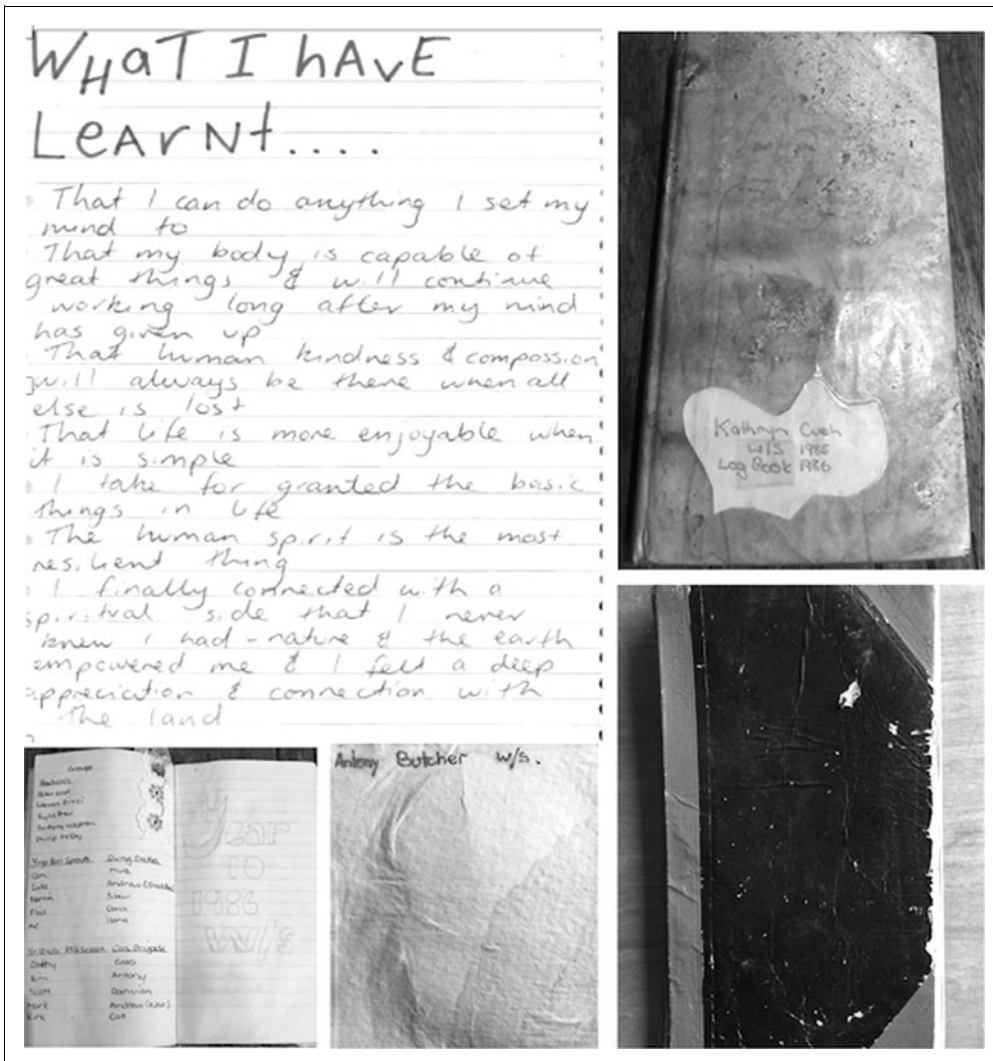 WHaT I hAvE
LeArNt....
That I can do anything I set my
mind to
That my body is capable of
great things & will continue
working long after my mind
has given up
That human kindness & compassion
will always be there when all
else is lost
That life is more enjoyable when
it is simple
I take for granted the basic
things in life
The human spirit is the most
resilient thing
I finally connected with a
spiritual side that I never
knew I had - nature & the earth
empowered me & I felt a deep
appreciation & connection with
the land
Kathryn
W/S 1985
Log Book 1986
Groups
Luke Andrew
Martin
Me
Cathy
Kim Antony
Scott Damian
Mark Andrew
Cat
Year
10
1986
W/S
Antony Butcher W/S.